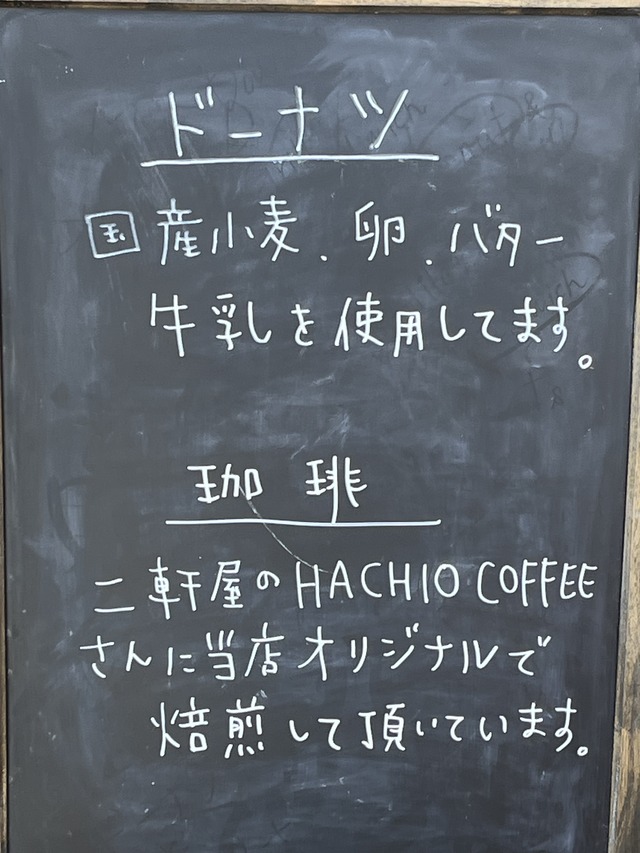 ドーナツ
国産小麦、卵、バター
牛乳を使用してます。
珈琲
二軒屋のHACHIO COFFEE
さんに当店オリジナルで
焙煎して頂いています。